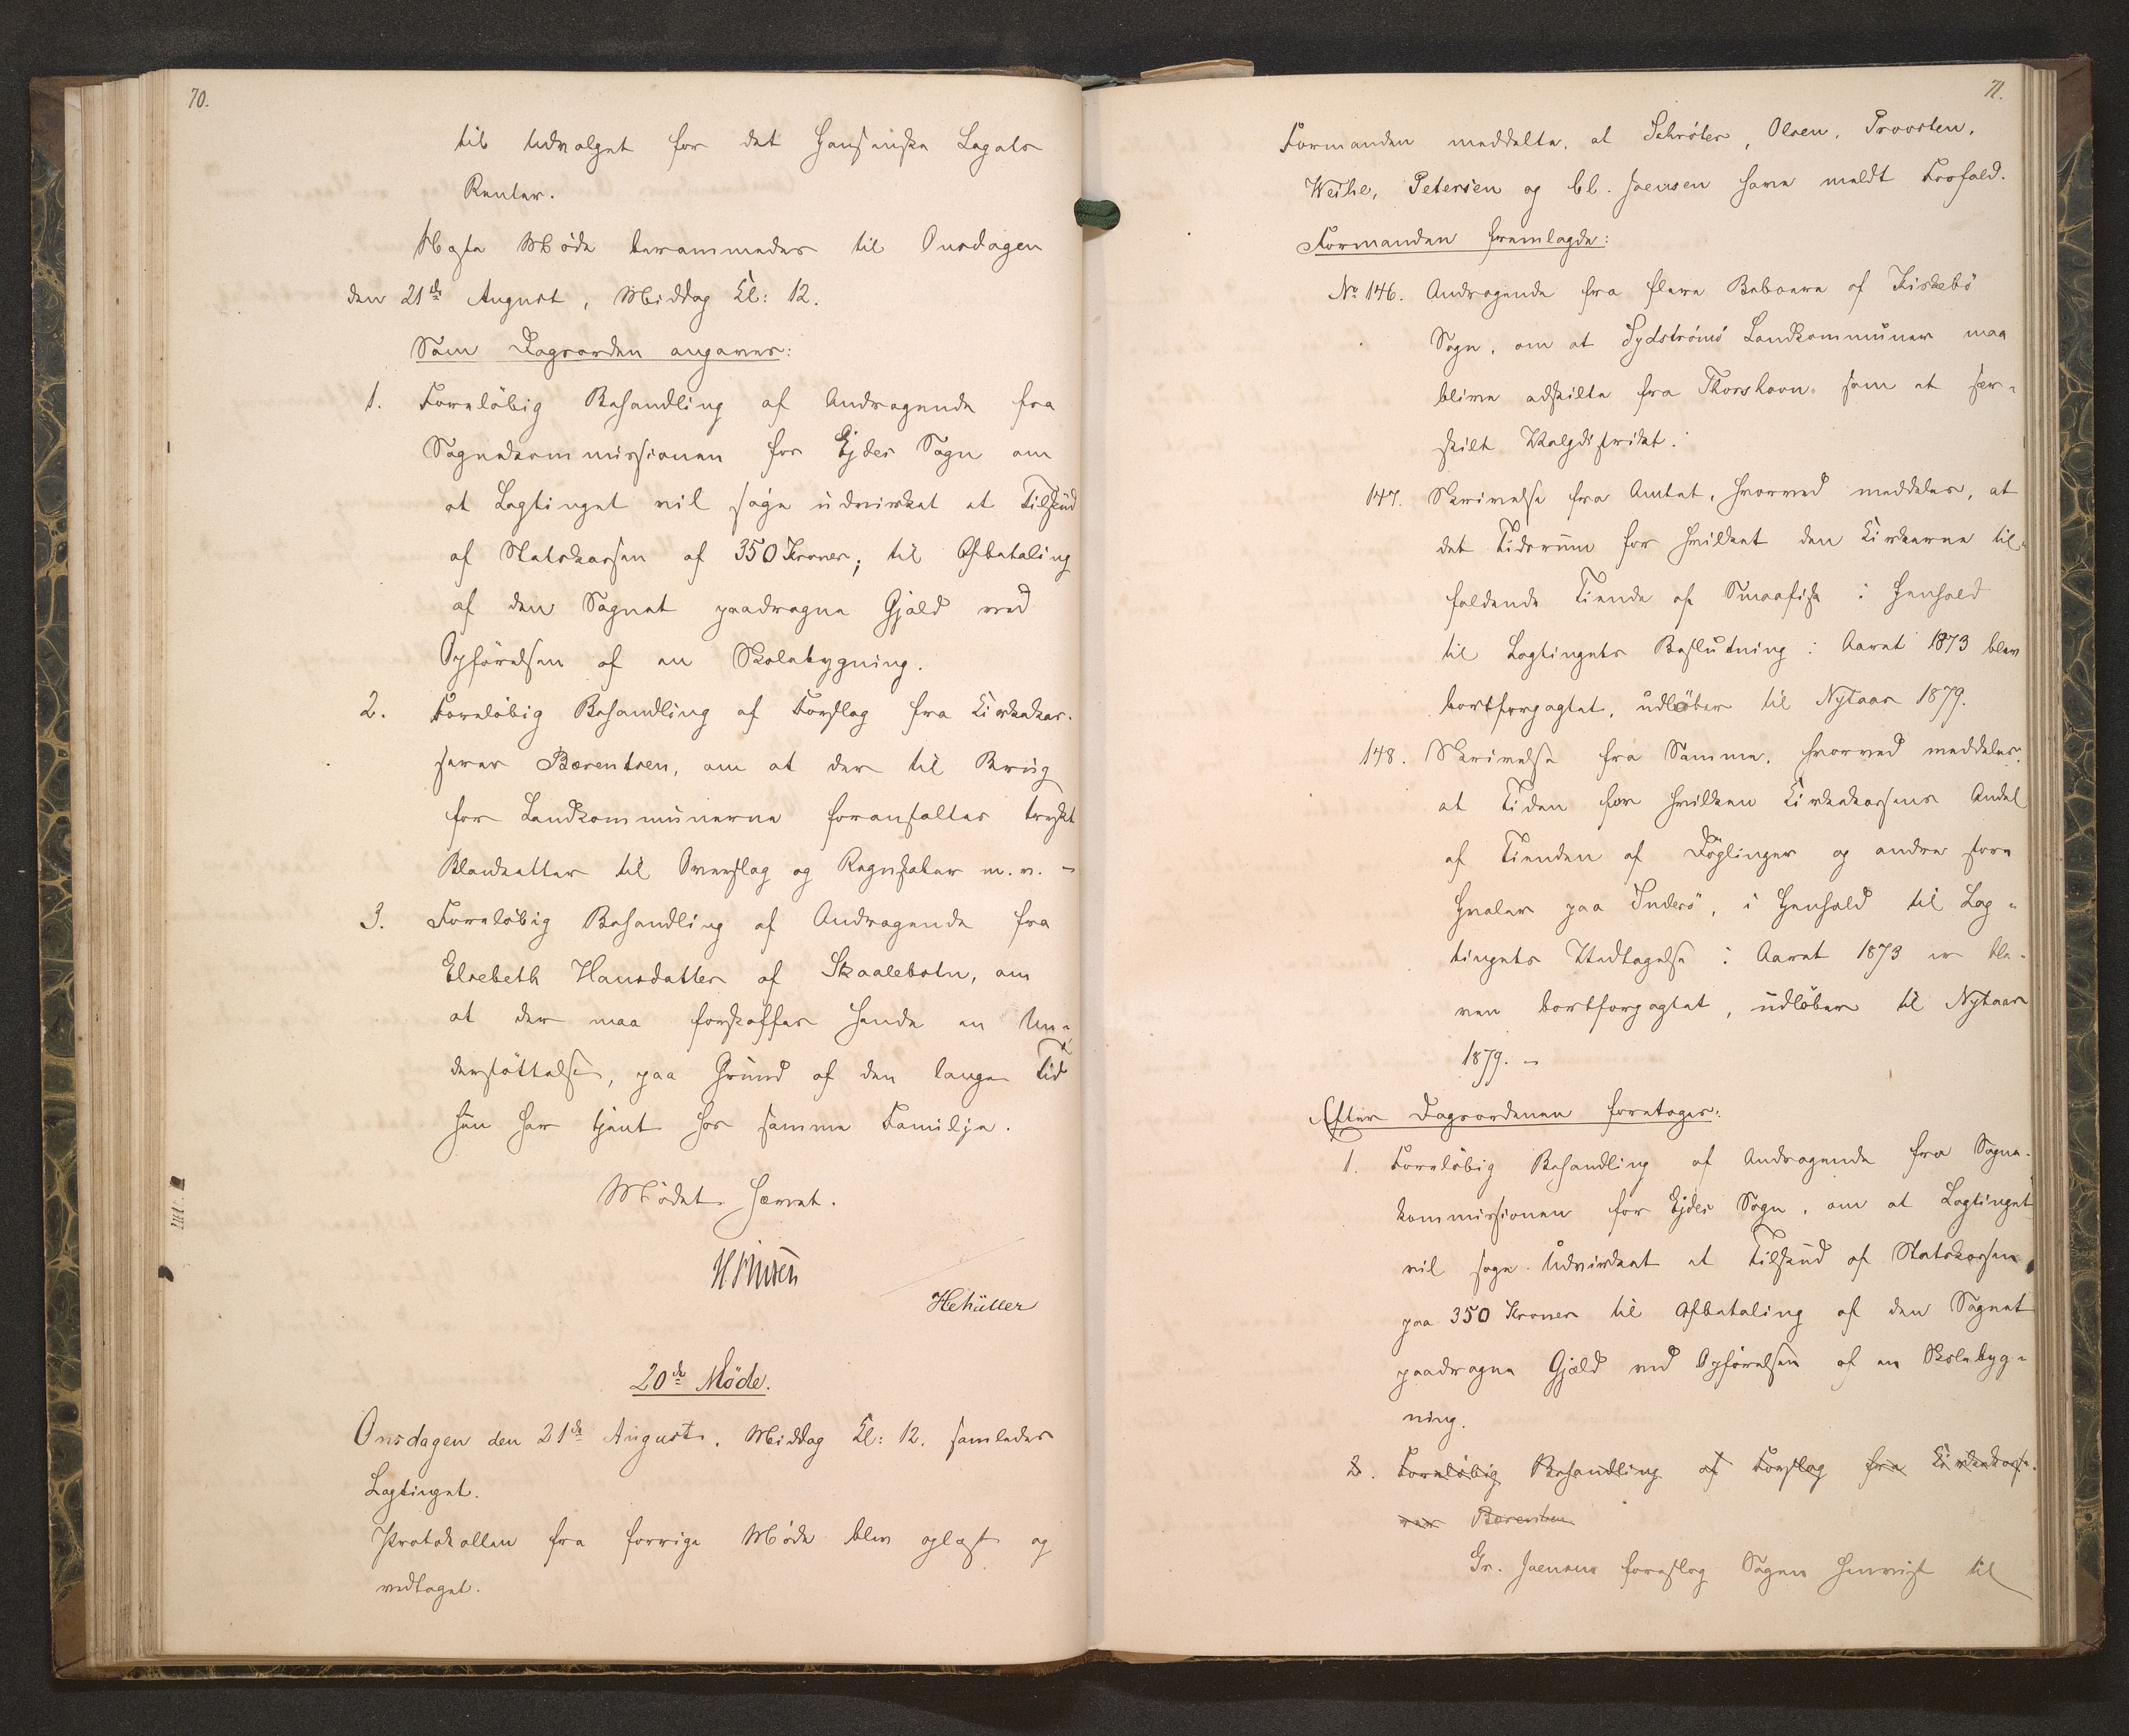 70.
til Udvalget for det Hansenske Legats
Renter.
Næste Møde berammedes til Onsdagen
den 21de August, Middag Kl: 12.
Som Dagsorden angaves:
1. Foreløbig Behandling af Andragende fra
Sognekommissionen for Ejdes Sogn om
at Lagtinget vil søge udvirket et Tilskud
af Statskassen af 350 Kroner, til Afbetaling
af den Sognet paadragne Gjæld ved
Opførelsen af en Skolebygning.
2. Foreløbig Behandling af Forslag fra Kirkekas-
serer Bærentsen, om at der til Brug
for Landkommunerne foranstaltes trykt
Blanketter til Overslag og Regnskaber m. v. -
3. Foreløbig Behandling af Andragende fra
Elsebeth Hansdatter af Skaalebotn, om
at der maa forskaffes hende en Un-
derstøttelse, paa Grund af den lange Tid
hun har tjent hos samme Familje.
Mødet hævet.
HMüller
20de Møde.
Onsdagen den 21de August, Middag Kl: 12. samledes
Lagtinget.
Protokollen fra forrige Møde blev oplæst og
vedtaget.
71.
Formanden meddelte, at Schrøter, Olsen, Provsten,
Weihe, Petersen og Cl. Joensen have meldt Forfald.
Formanden fremlagde:
No 146. Andragende fra flere Beboere af Kirkebø
Sogn, om at Sydstrømø Landkommuner maa
blive adskilte fra Thorshavn som et sær-
skilt Valgdistrikt.
147. Skrivelse fra Amtet, hvorved meddeles, at
det Tidsrum for hvilket den Kirkerne til-
faldende Tiende af Smaafisk i Henhold
til Lagtingets Beslutning i Aaret 1873 blev
bortforpagtet, udløber til Nytaar 1879.
148. Skrivelse fra Samme, hvorved meddeles,
at Tiden for hvilken Kirkekassens Andel
af Tienden af Døglinger og andre store
Hvaler paa Suderø, i Henhold til Lag-
tingets Vedtagelse i Aaret 1873 er ble-
ven bortforpagtet, udløber til Nytaar
1879. -
Efter Dagsordenen foretoges:
1. Foreløbig Behandling af Andragende fra Sogne-
kommissionen for Ejdes Sogn, om at Lagtinget
vil søge Udvirket et Tilskud af Statskassen
paa 350 Kroner til Afbetaling af den Sognet
paadragne Gjæld ved Opførelsen af en Skolebyg-
ning.
2. Foreløbig Behandling af Forslag fra Kirkekasse-
rer Bærentsen
Gr. Joensen foreslog Sagen henvist til